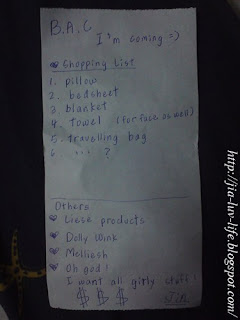 B.A.C
I'm coming =)
Shopping List
1. pillow
2. bedsheet
3. blanket
4. Towel (for face as well)
5. Travelling bag
6. ... ?
Others
Liese products
Dolly Wink
Melliesh
Oh god!
I want all girly stuff!
$ $ $
Jia
http://jia-luv-life.blogspot.com/